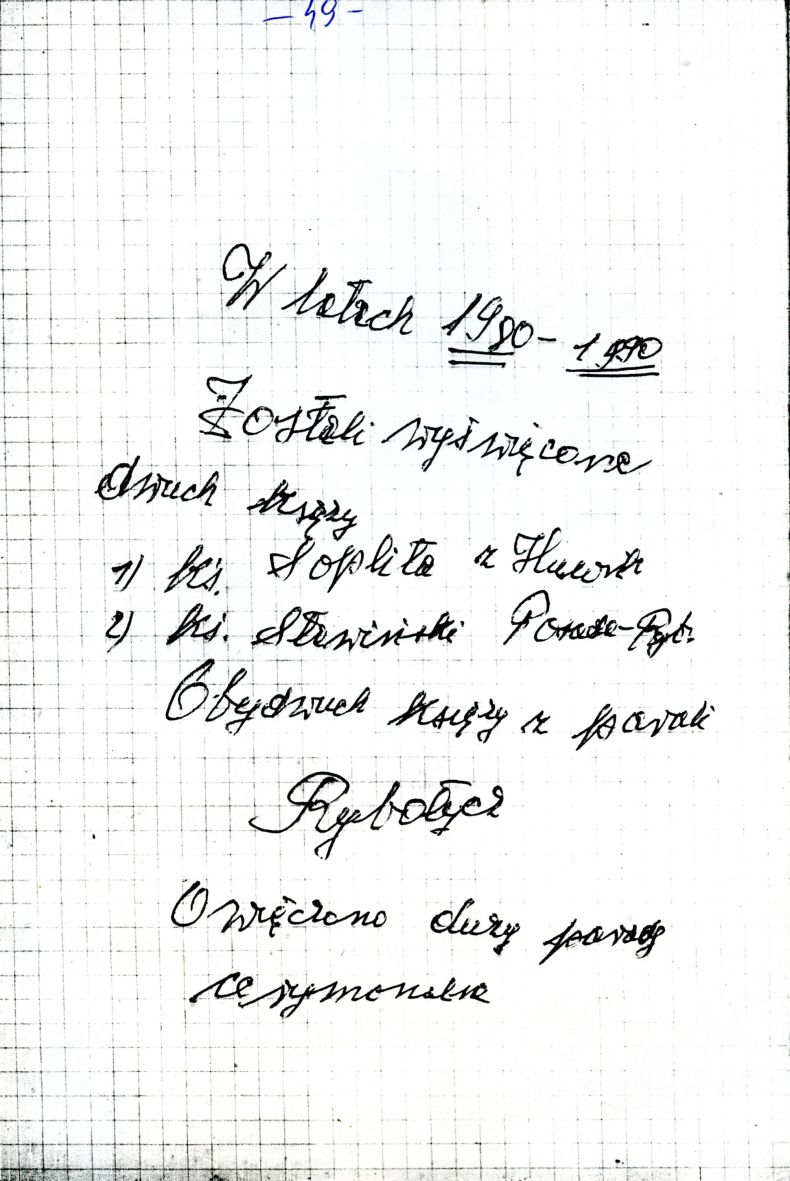 — 49 -
W latach 1980 - 1990
Zostali wyświęcone
dwuch księży
1) ks. Soplita z Huwnik
2) ks. Stawiński Posada-Ryb.
Obydwuch księży z parali
Rybotycz
Owięczono duży parady